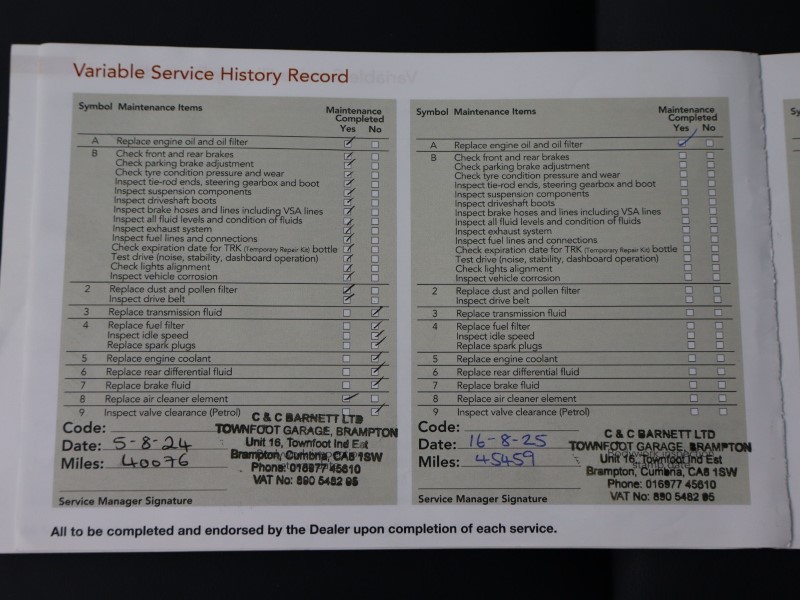 Variable Service History Record
Symbol Maintenance Items
Maintenance
Completed
Yes No
A Replace engine oil and oil filter
B Check front and rear brakes
Check parking brake adjustment
Check tyre condition pressure and wear
Inspect tie-rod ends, steering gearbox and boot
Inspect suspension components
Inspect driveshaft boots
Inspect brake hoses and lines including VSA lines
Inspect all fluid levels and condition of fluids
Inspect exhaust system
Inspect fuel lines and connections
Check expiration date for TRK (Temporary Repair Kit) bottle
Test drive (noise, stability, dashboard operation)
Check lights alignment
Inspect vehicle corrosion
2 Replace dust and pollen filter
Inspect drive belt
3 Replace transmission fluid
4 Replace fuel filter
Inspect idle speed
Replace spark plugs
5 Replace engine coolant
6 Replace rear differential fluid
7 Replace brake fluid
8 Replace air cleaner element
9 Inspect valve clearance (Petrol)
Code:
Date: 5-8-24
Miles: 40076
C & C BARNETT LTD
TOWNFOOT GARAGE, BRAMPTON
Unit 16, Townfoot Ind Est
Brampton, Cumbria, CA8 1SW
Phone: 016977 45610
VAT No: 890 5482 95
Service Manager Signature
Symbol Maintenance Items
Maintenance
Completed
Yes No
A Replace engine oil and oil filter
B Check front and rear brakes
Check parking brake adjustment
Check tyre condition pressure and wear
Inspect tie-rod ends, steering gearbox and boot
Inspect suspension components
Inspect driveshaft boots
Inspect brake hoses and lines including VSA lines
Inspect all fluid levels and condition of fluids
Inspect exhaust system
Inspect fuel lines and connections
Check expiration date for TRK (Temporary Repair Kit) bottle
Test drive (noise, stability, dashboard operation)
Check lights alignment
Inspect vehicle corrosion
2 Replace dust and pollen filter
Inspect drive belt
3 Replace transmission fluid
4 Replace fuel filter
Inspect idle speed
Replace spark plugs
5 Replace engine coolant
6 Replace rear differential fluid
7 Replace brake fluid
8 Replace air cleaner element
9 Inspect valve clearance (Petrol)
Code:
Date: 16-8-25
Miles: 45459
C & C BARNETT LTD
TOWNFOOT GARAGE, BRAMPTON
Unit 16, Townfoot Ind Est
Brampton, Cumbria, CA8 1SW
Phone: 016977 45610
VAT No: 890 5482 95
Service Manager Signature
All to be completed and endorsed by the Dealer upon completion of each service.